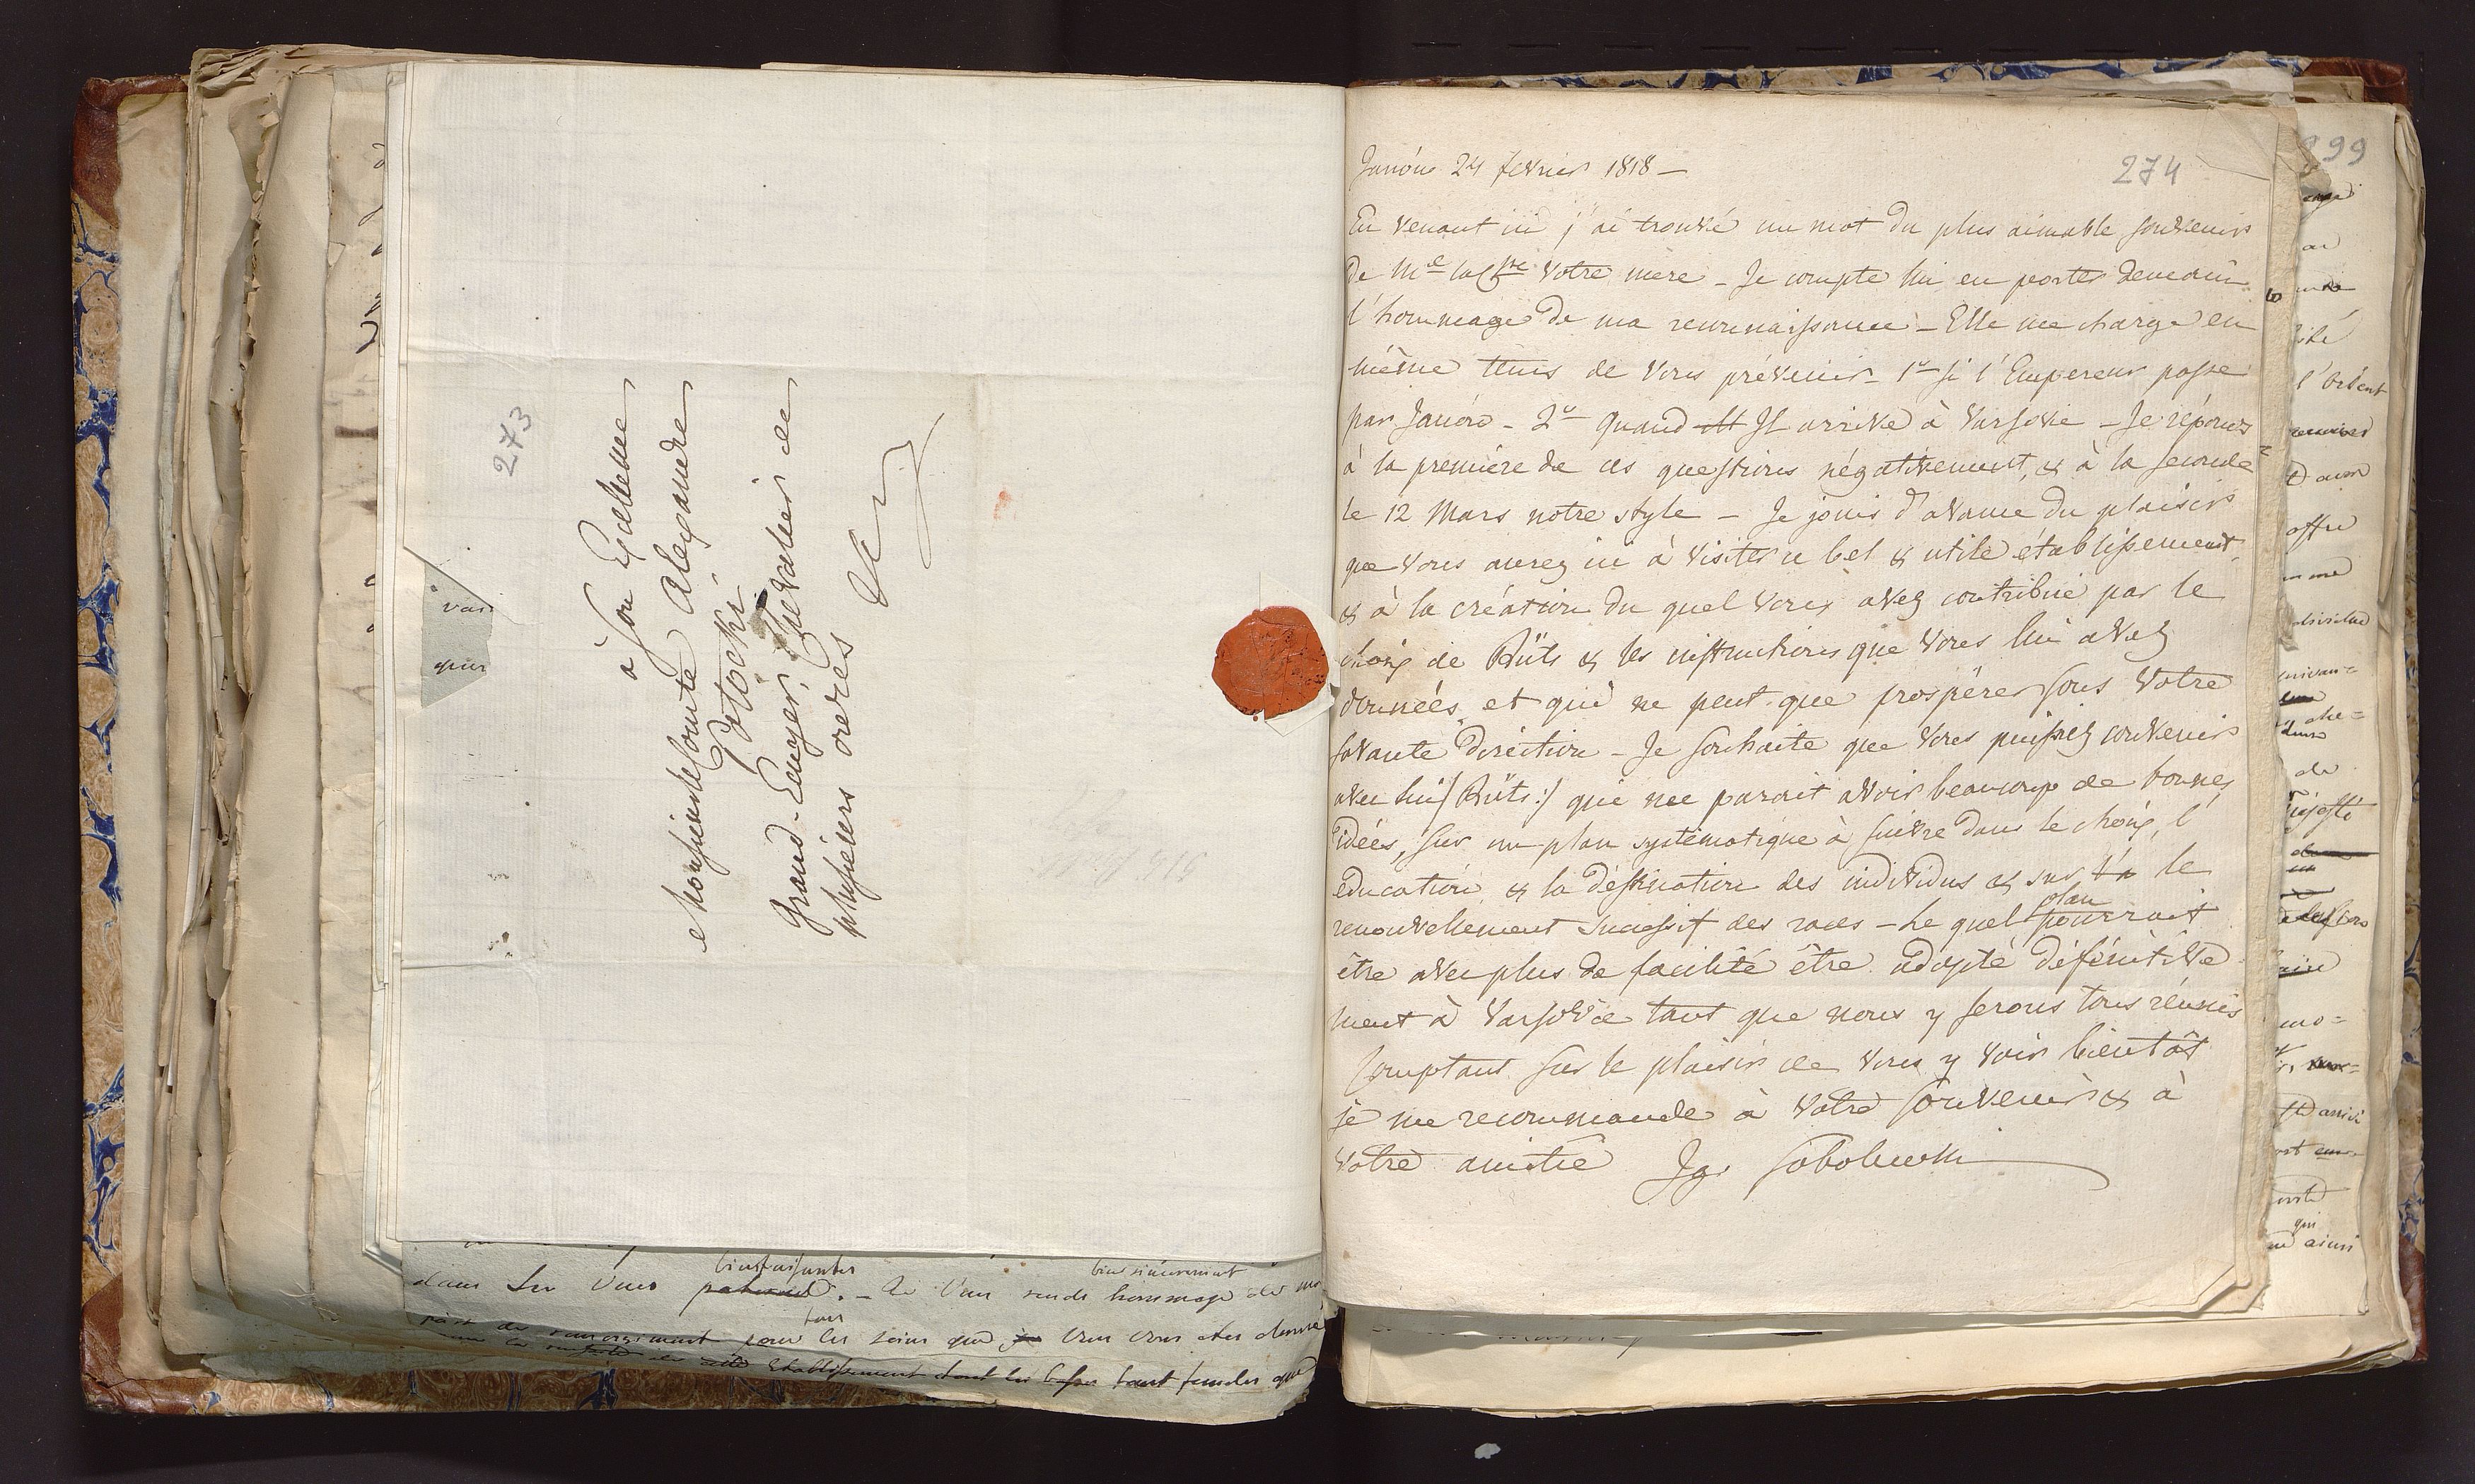 273
à Son Excellence
Monsieur le Comte Alexandre
Potocki
Grand-Ecuyer, Chevalier de
plusieurs ordres
274
Janów 24 fevrier 1818 —
En venant ici j'ai trouvé un mot du plus aimable souvenir
de Me la Csse Votre mere - Je compte lui en porter demain
l'hommage de ma reconnaissance - Elle me charge en
même tems de Vous prévenir - 1o si l'Empereur passe
par Janów - 2o quand Il arrive à Varsovie - Je réponds
à la première de ces questions négativement, & à la seconde
le 12 Mars notre style - Je jouis d'avance du plaisir
que Vous aurez ici à visiter ce bel & utile établissement,
& à la création du quel Vous avez contribué par le
choix de Rüts & les instructions que Vous lui avez
données et qui ne peut que prospérer sous Votre
savante direction - Je souhaite que Vous puissiez convenir
avec lui /: Rüts :/ qui me parait avoir beaucoup de bonnes
idées, sur un plan systématique à suivre dans le choix, l'
education & la destination des individus & sur le
renouvellement successif des races - Le quel plan pourrait
être avec plus de facilité être adopté définitive
ment à Varsovie tant que nous y serons tous réunis
Comptant sur le plaisir de Vous y voir bientôt
je me recommande à Votre souvenir & à
Votre amitié Ig. Sobolewski
bienfaisantes bien sincerement
dans les Vues - Je Vous rends hommage de
tous
pour les soins que Vous Vous
etablissement dont les bases sont
99
vas
que
l'
offre
de
qui
ainsi